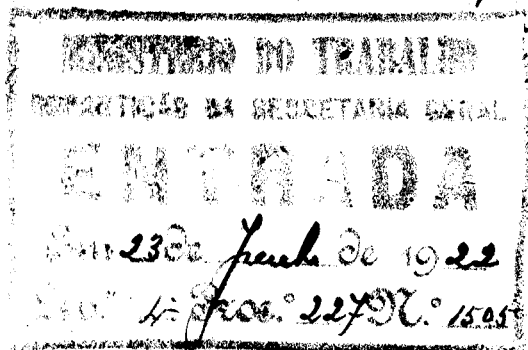 MINISTERIO DO TRABALHO
REPARTIÇÃO DA SECRETARIA GERAL
ENTRADA
Em 23 de Junho de 1922
4 Proc.º 227 N.º 1505